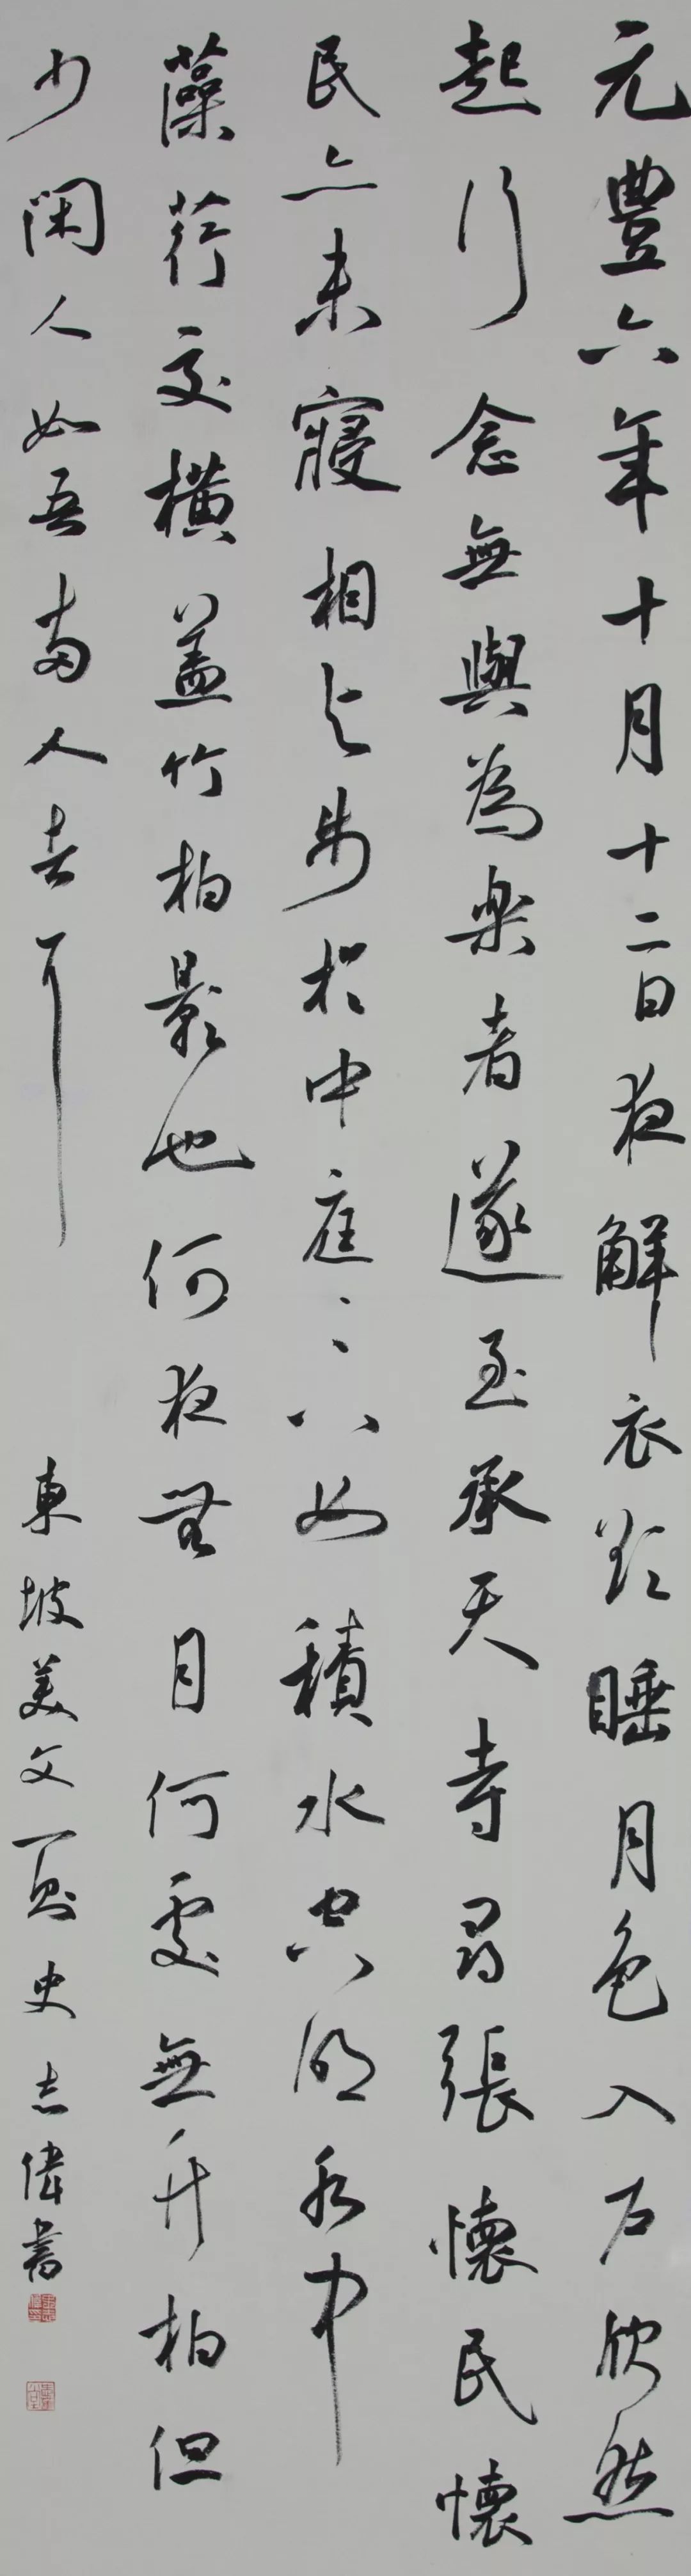 元豐六年十月十二日夜解衣欲睡月色入户欣然
起行念無與為樂者遂至承天寺尋張懷民懷
民亦未寢相与步於中庭〻下如積水空明水中
藻荇交橫蓋竹柏影也何夜無月何處無竹柏但
少閑人如吾兩人者耳
東坡美文一則史志偉書